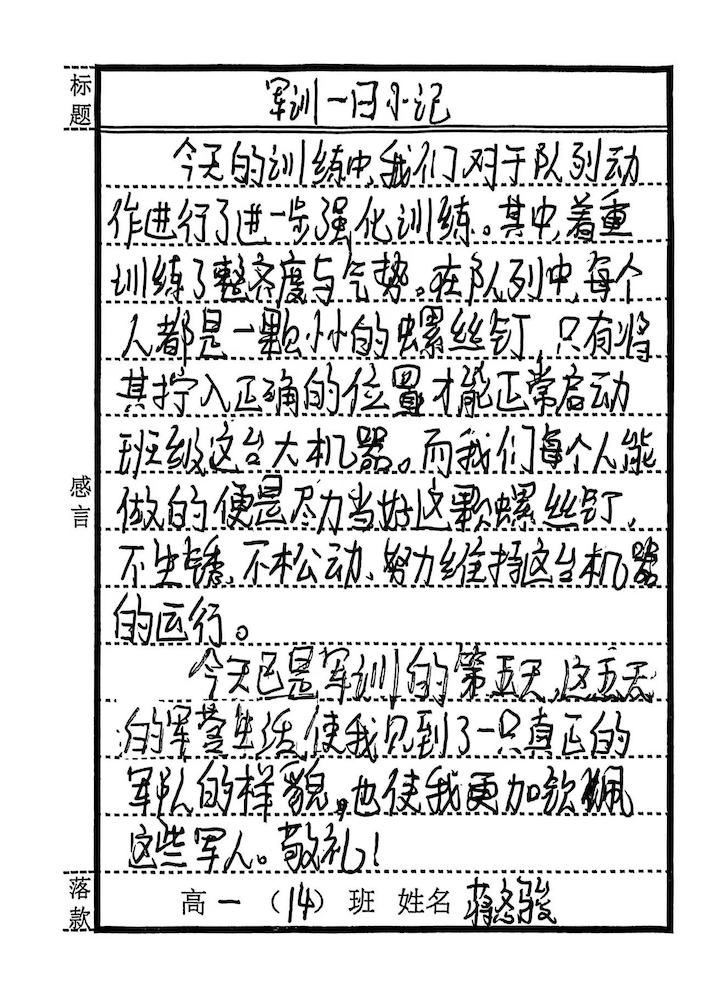 标题
军训一日小记
今天的训练中,我们对于队列动
作进行了进一步强化训练。其中,着重
训练了整齐度与气势。在队列中,每个
人都是一颗小小的螺丝钉,只有将
其拧入正确的位置才能正常启动
班级这台大机器。而我们每个人能
做的便是尽力当好这颗螺丝钉,
不生锈、不松动、努力维持这台机器
的运行。
感言
今天已是军训的第五天,这五天
的军营生活,使我见到了一只真正的
军队的样貌,也使我更加钦佩
这些军人。敬礼!
落款
高一(14)班 姓名 蒋骏